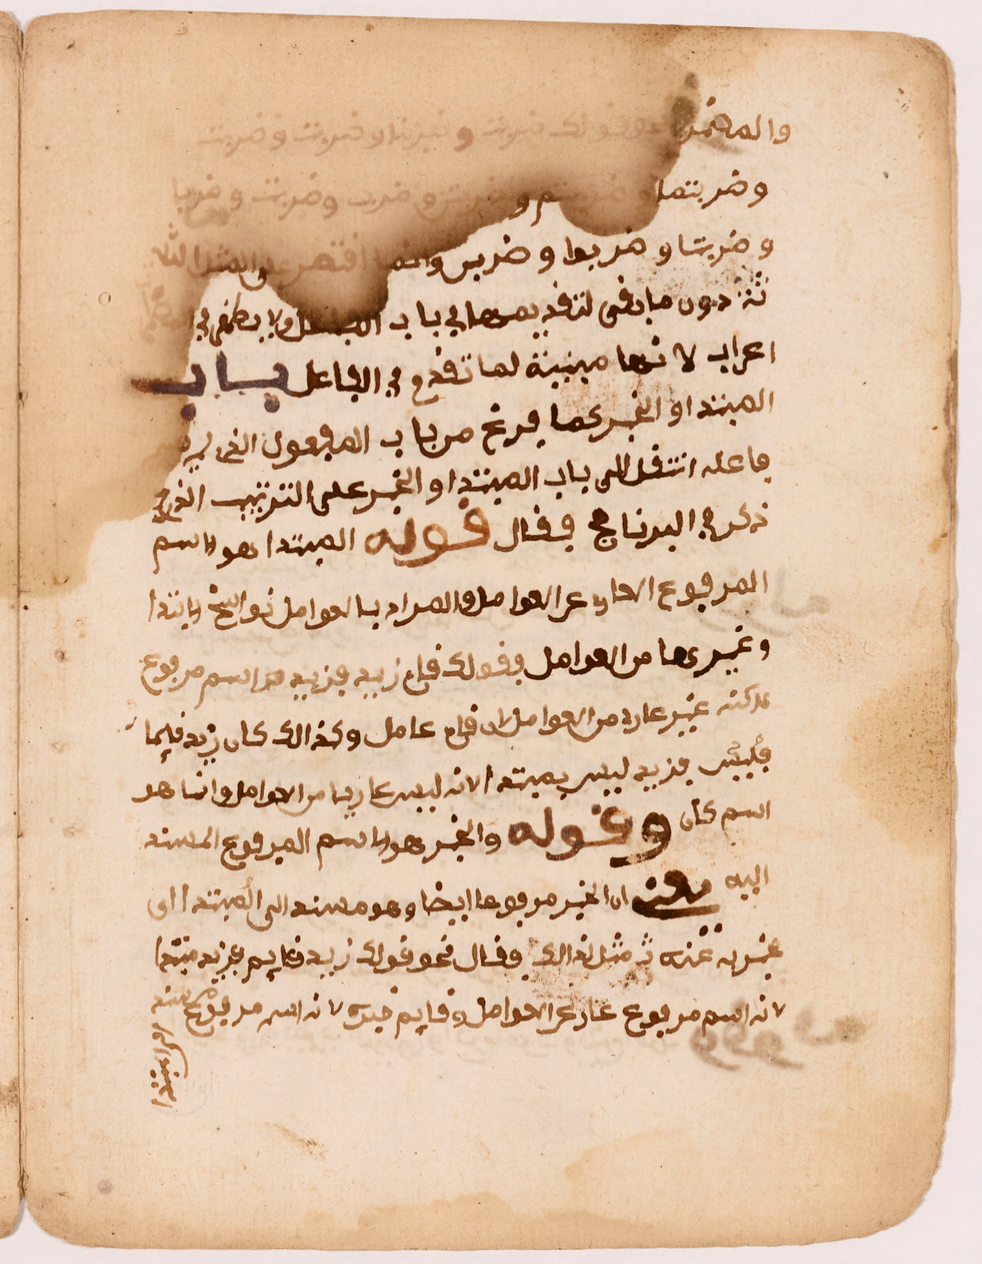 والمضمر نحو قولك ضربت و ضربنا و ضربت و ضربت
و ضربتما و ضربتم و ضربتن و ضرب و ضربت و ضربا
و ضربتا و ضربوا و ضربن وانما اقتصر على المثل الثلا
ثة دون ما بقى لتقديمها في باب الفاعل ولا يظهر في
اعراب لانها مبنية لما تقدم في الفاعل باب
المبتدا و الخبر كما فرغ من باب المفعول الذي لم
فاعله انتقل الى باب المبتدا و الخبر على الترتيب الذي
ذكر في البرنامج فقال قوله المبتدا هو الاسم
المرفوع العاري عن العوامل والمراد بالعوامل نواسخ الابتدا
و غيرها من العوامل فقولك قام زيد فزيد هذا اسم مرفوع
لاكنه غير عار من العوامل لان قام عامل وكذالك كان زيد قايما
فليس فزيد ليس بمبتدا لانه ليس عاريا من العوامل وانما هو
اسم كان وقوله والخبر هو الاسم المرفوع المسند
اليه يعني ان الخبر مرفوعا ايضا وهو مسند الى المبتدا اى
مثل ذالك فقال نحو قولك زيد قايم فزيد مبتدا
لانه اسم مرفوع عار عن العوامل وقايم خبره لانه اسم مرفوع مسند
الى المبتدا